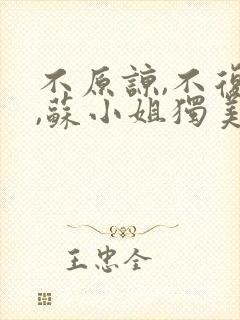 不原諒,不復
,蘇小姐獨美
王忠全